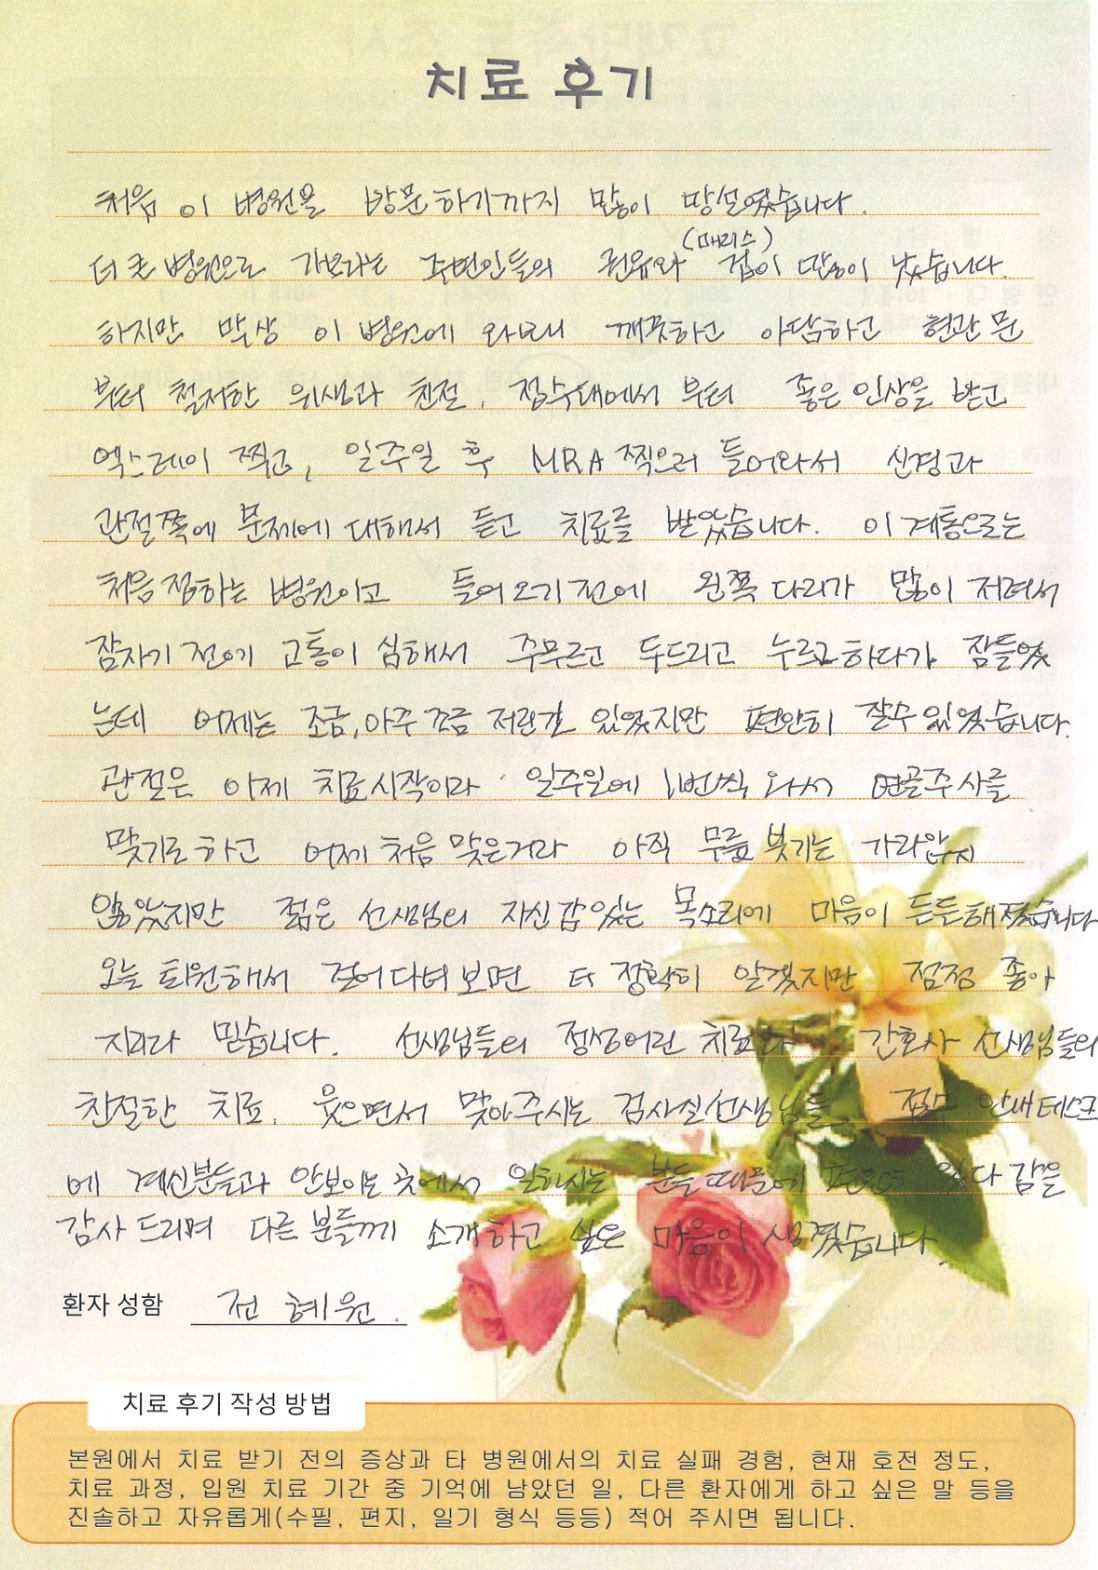 치료 후기
처음 이 병원을 방문하기까지 많이 망설였습니다.
(메리스)
더 큰 병원으로 가보라는 주변인들의 권유와 겁이 많이 났습니다.
하지만 막상 이 병원에 와보니 깨끗하고 아담하고 현관문
부터 철저한 위생과 친절. 접수대에서 부터 좋은 인상을 받고
엑스레이 찍고, 일주일 후 MRA 찍으러 들어와서 신경과
관절쪽에 문제에 대해서 듣고 치료를 받았습니다. 이 계통으로는
처음 접하는 병원이고 들어오기 전에 왼쪽 다리가 많이 저려서
잠자기 전에 고통이 심해서 주무르고 두드리고 누르고 하다가 잠들었
는데 어제는 조금, 아주 조금 저린건 있었지만 편안히 잘수 있었습니다.
관절은 어제 치료시작이라 일주일에 1번씩 와서 연골주사를
맞기로 하고 어제 처음 맞은거라 아직 무릎 붓기는 가라앉지
않았지만 젊은 선생님의 자신감있는 목소리에 마음이 든든해졌습니다
오늘 퇴원해서 걸어다녀 보면 더 정확히 알겠지만 점점 좋아
지리라 믿습니다. 선생님들의 정성어린 치료와 간호사 선생님들의
친절한 치료. 웃으면서 맞아주시는 검사실선생님들 접수 안내테스크
에 계신분들과 안보이는 곳에서 일하시는 분들 때문에 편안히 있다 감을
감사 드리며 다른 분들께 소개하고 싶은 마음이 생겼습니다
환자 성함 전 혜원.
치료 후기 작성 방법
본원에서 치료 받기 전의 증상과 타 병원에서의 치료 실패 경험, 현재 호전 정도,
치료 과정, 입원 치료 기간 중 기억에 남았던 일, 다른 환자에게 하고 싶은 말 등을
진솔하고 자유롭게(수필, 편지, 일기 형식 등등) 적어 주시면 됩니다.